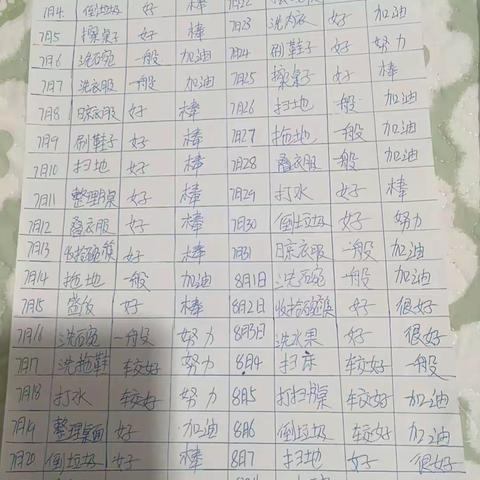 7月4 倒垃圾 好 棒
7月5 擦桌子 好 棒 7月23 洗内衣 好 加油
7月6 洗碗 一般 加油 7月24 刷鞋子 好 努力
7月7 洗衣服 一般 加油 7月25 擦桌子 好 棒
7月8 晾衣服 好 棒 7月26 扫地 一般 加油
7月9 刷鞋子 好 棒 7月27 拖地 一般 加油
7月10 扫地 好 棒 7月28 叠衣服 一般 加油
7月11 整理桌 好 棒 7月29 打水 好 棒
7月12 叠衣服 好 棒 7月30 倒垃圾 好 努力
7月13 收拾碗筷 好 棒 7月31 晾衣服 一般 加油
7月14 拖地 一般 加油 8月1日 洗碗 一般 加油
7月15 好 棒 8月2日 收拾碗筷 好 很好
7月16 洗碗 一般 努力 8月3日 洗水果 好 很好
7月17 洗拖鞋 较好 努力 8月4 扫床 较好 一般
7月18 打水 较好 努力 8月5 打扫桌 较好 加油
7月19 整理桌面 好 加油 8月6 倒垃圾 较好 加油
7月20 倒垃圾 好 棒 8月7 扫地 好 很好